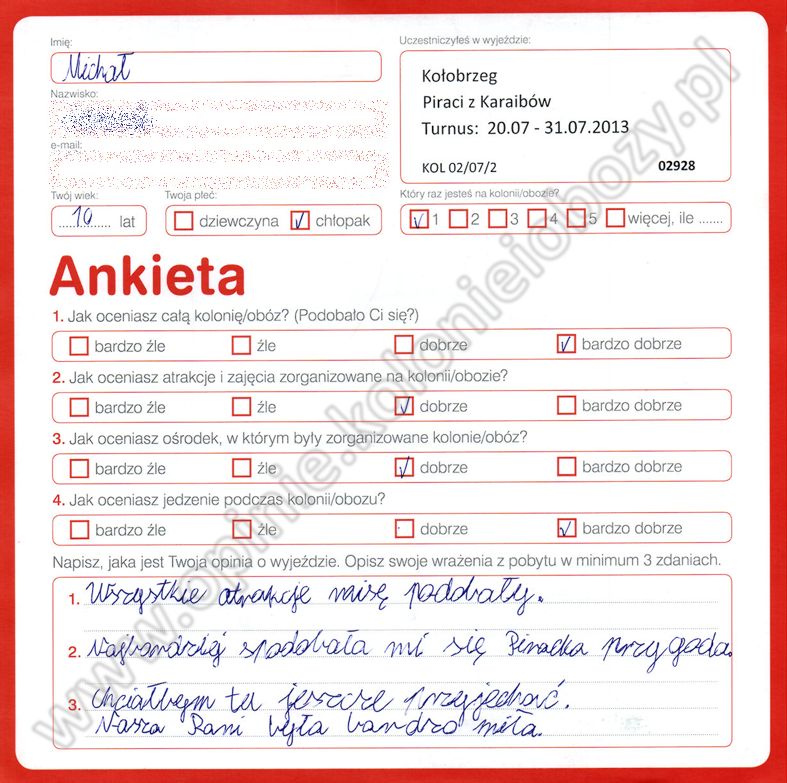 Imię:
Michał
Nazwisko:
e-mail:
Twój wiek:
10 lat
Twoja płeć:
dziewczyna chłopak
Uczestniczyłeś w wyjeździe:
Kołobrzeg
Piraci z Karaibów
Turnus: 20.07 - 31.07.2013
KOL 02/07/2 02928
Który raz jesteś na kolonii/obozie?
1 2 3 4 5 więcej, ile .......
Ankieta
1. Jak oceniasz całą kolonię/obóz? (Podobało Ci się?)
bardzo źle źle dobrze bardzo dobrze
2. Jak oceniasz atrakcje i zajęcia zorganizowane na kolonii/obozie?
bardzo źle źle dobrze bardzo dobrze
3. Jak oceniasz ośrodek, w którym były zorganizowane kolonie/obóz?
bardzo źle źle dobrze bardzo dobrze
4. Jak oceniasz jedzenie podczas kolonii/obozu?
bardzo źle źle dobrze bardzo dobrze
Napisz, jaka jest Twoja opinia o wyjeździe. Opisz swoje wrażenia z pobytu w minimum 3 zdaniach.
1. Wszystkie atrakcje misę podobały.
2. Najbardziej spodobała mi się Piracka przygoda.
3. Chciałbym tu jeszcze przyjechać.
Nasza Pani była bardzo miła.
www.opinie.kolonieiobozy.pl